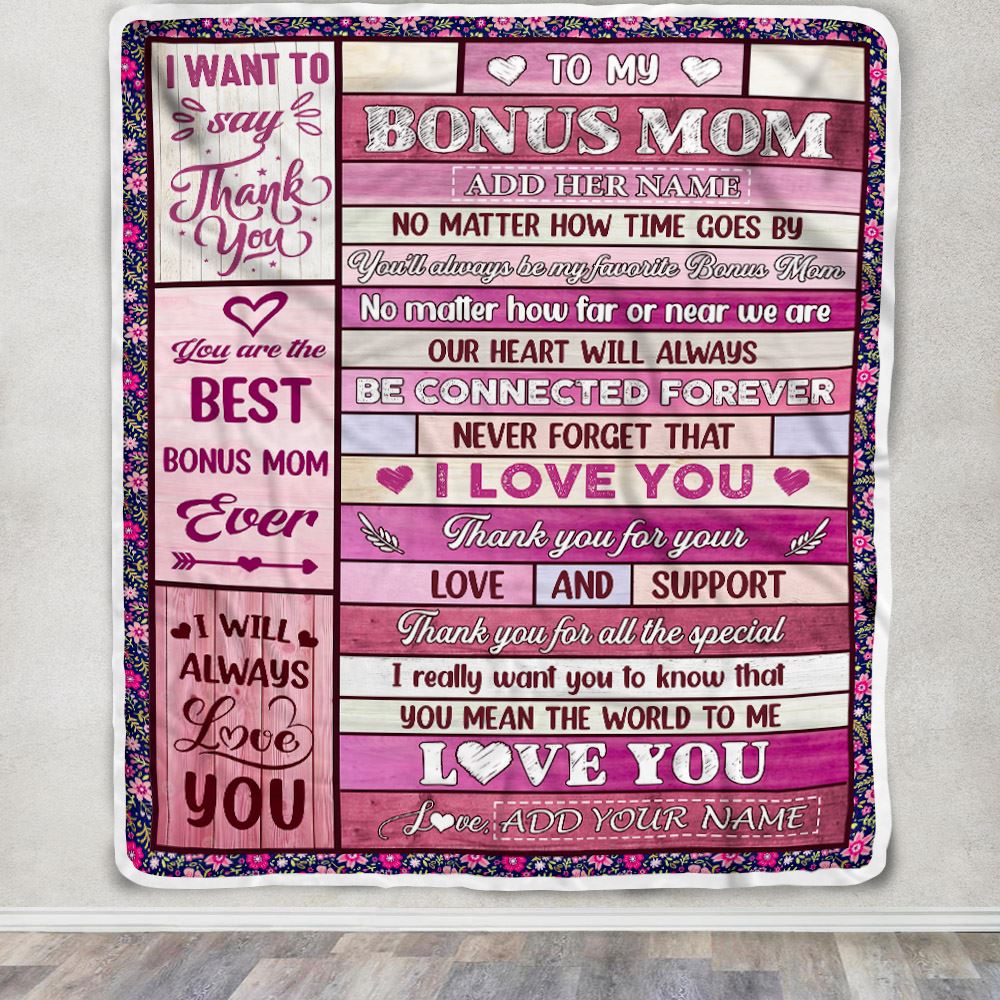 I WANT TO
say
Thank
You
You are the
BEST
BONUS MOM
Ever
I WILL
ALWAYS
Love
YOU
TO MY
BONUS MOM
ADD HER NAME
NO MATTER HOW TIME GOES BY
You'll always be my favorite Bonus Mom
No matter how far or near we are
OUR HEART WILL ALWAYS
BE CONNECTED FOREVER
NEVER FORGET THAT
I LOVE YOU
Thank you for your
LOVE AND SUPPORT
Thank you for all the special
I really want you to know that
YOU MEAN THE WORLD TO ME
LOVE YOU
Love, ADD YOUR NAME